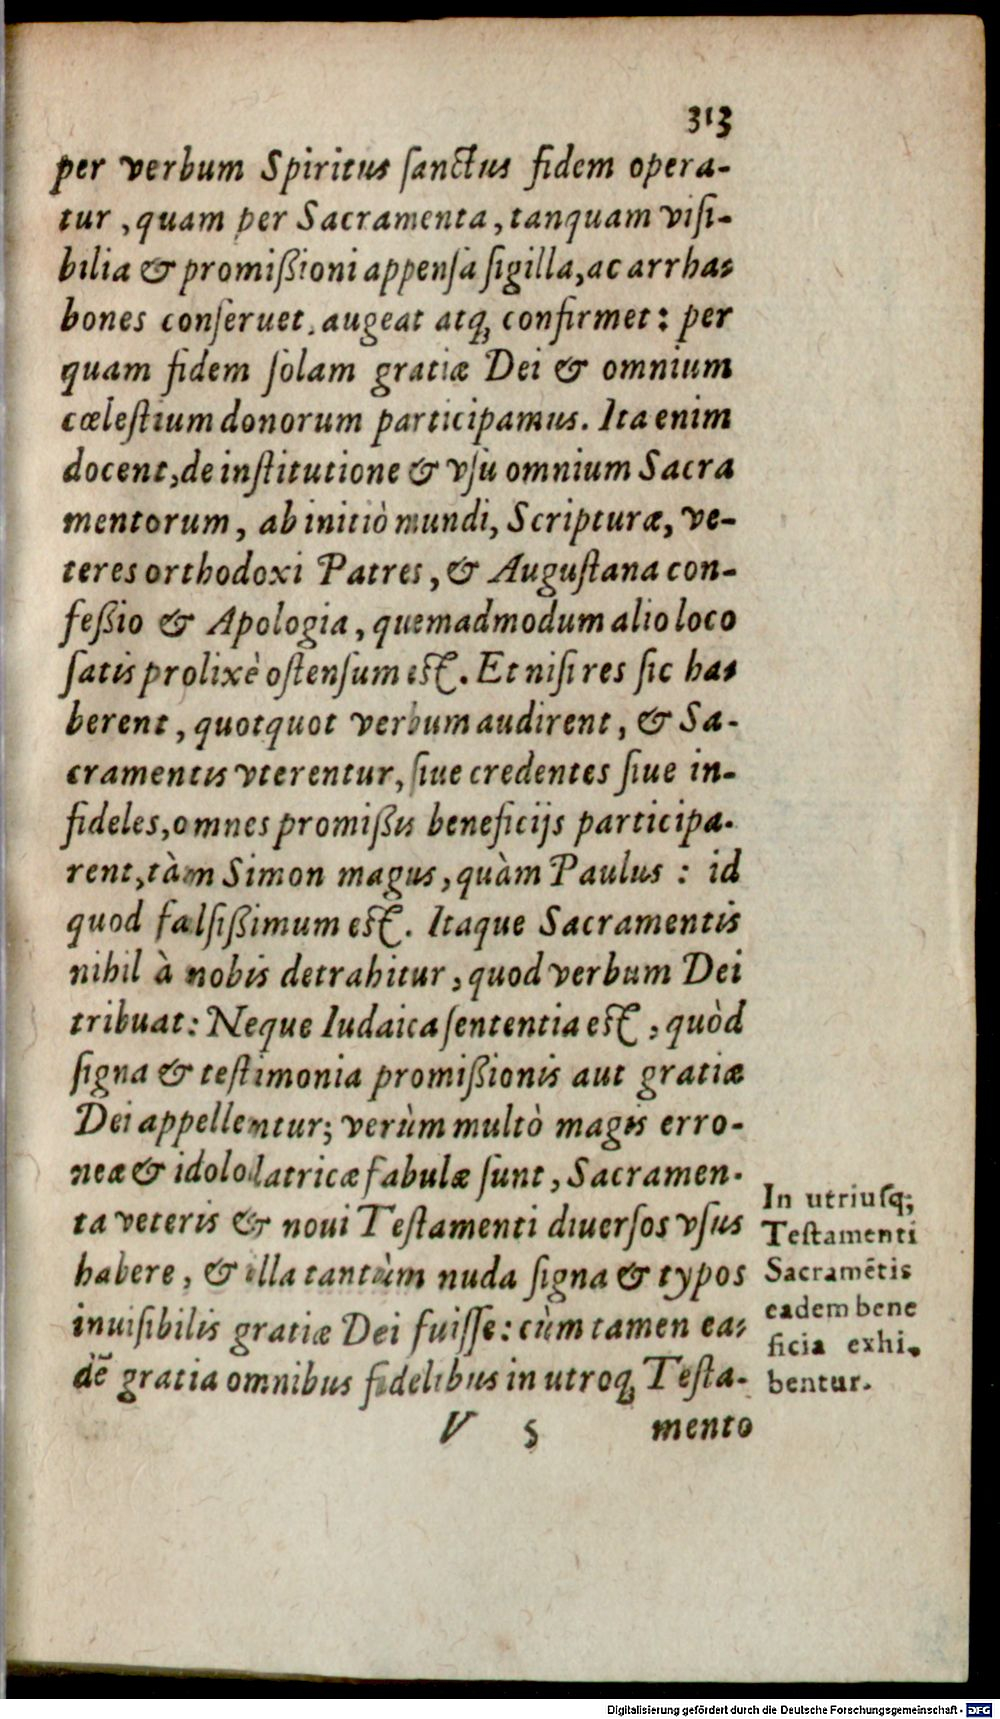 313
per verbum Spiritus ſanctus fidem opera-
tur, quam per Sacramenta, tanquam viſi-
bilia & promißioni appenſa ſigilla, ac arrha-
bones conſeruet, augeat atq; confirmet: per
quam fidem ſolam gratiæ Dei & omnium
cœleſtium donorum participamus. Ita enim
docent, de inſtitutione & vſu omnium Sacra
mentorum, ab initiò mundi, Scripturæ, ve-
teres orthodoxi Patres, & Auguſtana con-
feßio & Apologia, quemadmodum alio loco
ſatis prolixè oſtenſum eſt. Et niſi res ſic ha-
berent, quotquot verbum audirent, & Sa-
cramentis vterentur, ſiue credentes ſiue in-
fideles, omnes promißis beneficijs participa-
rent, tàm Simon magus, quàm Paulus: id
quod falſißimum eſt. Itaque Sacramentis
nihil à nobis detrahitur, quod verbum Dei
tribuat: Neque Iudaica ſententia eſt, quòd
ſigna & teſtimonia promißionis aut gratiæ
Dei appellentur; verùm multò magis erro-
neæ & idololatricæ fabulæ ſunt, Sacramen-
ta veteris & noui Teſtamenti diuerſos vſus
habere, & illa tantùm nuda ſigna & typos
inuiſibilis gratiæ Dei fuiſſe: cùm tamen ea-
dē gratia omnibus fidelibus in utroq; Teſta-
In utriuſq;
Teſtamenti
Sacramētis
eadem bene
ficia exhi-
bentur.
V 5 mento
Digitalisierung gefördert durch die Deutsche Forschungsgemeinschaft - DFG